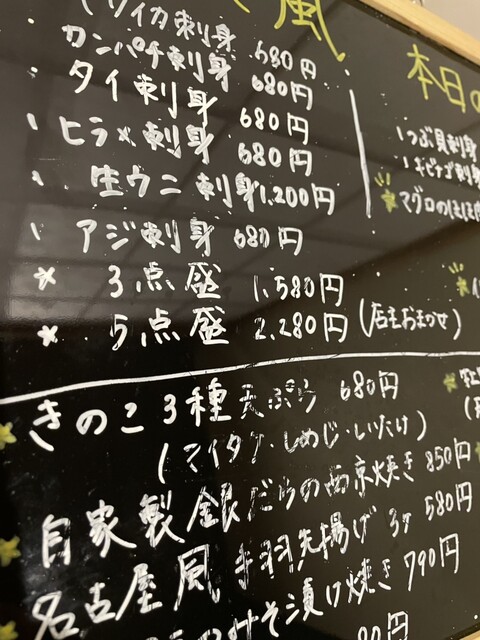 風
イカ刺身 680円
カンパチ刺身 680円
タイ刺身 680円
ヒラメ刺身 680円
生ウニ刺身 1,200円
アジ刺身 680円
* 3点盛 1,580円
* 5点盛 2,280円 (店主おまかせ)
きのこ3種天ぷら 680円
(マイタケ・しめじ・しいたけ)
自家製銀だらの西京焼き 850円
名古屋風手羽先揚げ3ヶ 580円
みそ漬け焼き 790円
本日の
つぶ貝刺身
キビナゴ刺身
マグロのほほ肉